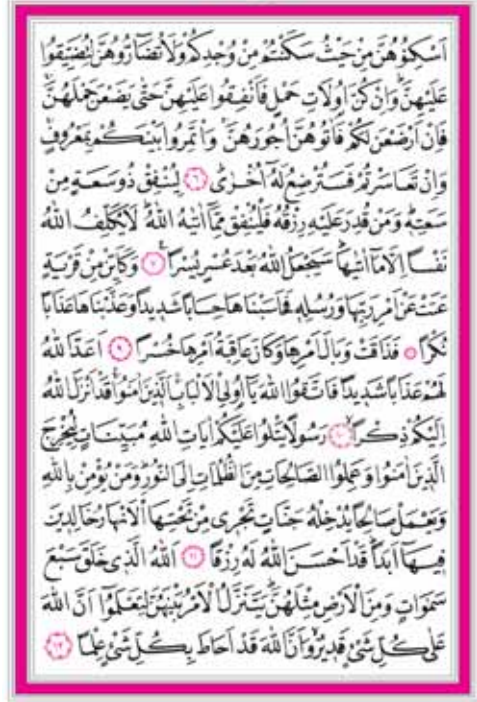 اَسْكِنُوهُنَّ مِنْ حَيْثُ سَكَنْتُمْ مِنْ وُجْدِكُمْ وَلَا تُضَٓارُّوهُنَّ لِتُضَيِّقُوا
عَلَيْهِنَّۜ وَاِنْ كُنَّ اُو۬لَاتِ حَمْلٍ فَاَنْفِقُوا عَلَيْهِنَّ حَتّٰى يَضَعْنَ حَمْلَهُنَّۚ
فَاِنْ اَرْضَعْنَ لَكُمْ فَاٰتُوهُنَّ اُجُورَهُنَّۚ وَأْتَمِرُوا بَيْنَكُمْ بِمَعْرُوفٍۚ
وَاِنْ تَعَاسَرْتُمْ فَسَتُرْضِعُ لَهُٓ اُخْرٰىۜ ﴿٦﴾ لِيُنْفِقْ ذُو سَعَةٍ مِنْ
سَعَتِه۪ۜ وَمَنْ قُدِرَ عَلَيْهِ رِزْقُهُ فَلْيُنْفِقْ مِمَّٓا اٰتٰيهُ اللّٰهُۜ لَا يُكَلِّفُ اللّٰهُ
نَفْساً اِلَّا مَٓا اٰتٰيهَاۜ سَيَجْعَلُ اللّٰهُ بَعْدَ عُسْرٍ يُسْراً۟ ﴿٧﴾ وَكَاَيِّنْ مِنْ قَرْيَةٍ
عَتَتْ عَنْ اَمْرِ رَبِّهَا وَرُسُلِه۪ فَحَاسَبْنَاهَا حِسَاباً شَد۪يداً وَعَذَّبْنَاهَا عَذَاباً
نُكْراً ۝ فَذَاقَتْ وَبَالَ اَمْرِهَا وَكَانَ عَاقِبَةُ اَمْرِهَا خُسْراً ﴿٩﴾ اَعَدَّ اللّٰهُ
لَهُمْ عَذَاباً شَد۪يداً فَاتَّقُوا اللّٰهَ يَٓا اُو۬لِي الْاَلْبَابِۚ اَلَّذ۪ينَ اٰمَنُواۜ قَدْ اَنْزَلَ اللّٰهُ
اِلَيْكُمْ ذِكْراًۙ ﴿١٠﴾ رَسُولاً يَتْلُوا عَلَيْكُمْ اٰيَاتِ اللّٰهِ مُبَيِّنَاتٍ لِيُخْرِجَ
الَّذ۪ينَ اٰمَنُوا وَعَمِلُوا الصَّالِحَاتِ مِنَ الظُّلُمَاتِ اِلَى النُّورِۜ وَمَنْ يُؤْمِنْ بِاللّٰهِ
وَيَعْمَلْ صَالِحاً يُدْخِلْهُ جَنَّاتٍ تَجْر۪ي مِنْ تَحْتِهَا الْاَنْهَارُ خَالِد۪ينَ
ف۪يهَٓا اَبَداًۜ قَدْ اَحْسَنَ اللّٰهُ لَهُ رِزْقاً ﴿١١﴾ اَللّٰهُ الَّذ۪ي خَلَقَ سَبْعَ
سَمٰوَاتٍ وَمِنَ الْاَرْضِ مِثْلَهُنَّۜ يَتَنَزَّلُ الْاَمْرُ بَيْنَهُنَّ لِتَعْلَمُٓوا اَنَّ اللّٰهَ
عَلٰى كُلِّ شَيْءٍ قَد۪يرٌ وَاَنَّ اللّٰهَ قَدْ اَحَاطَ بِكُلِّ شَيْءٍ عِلْماً ﴿١٢﴾